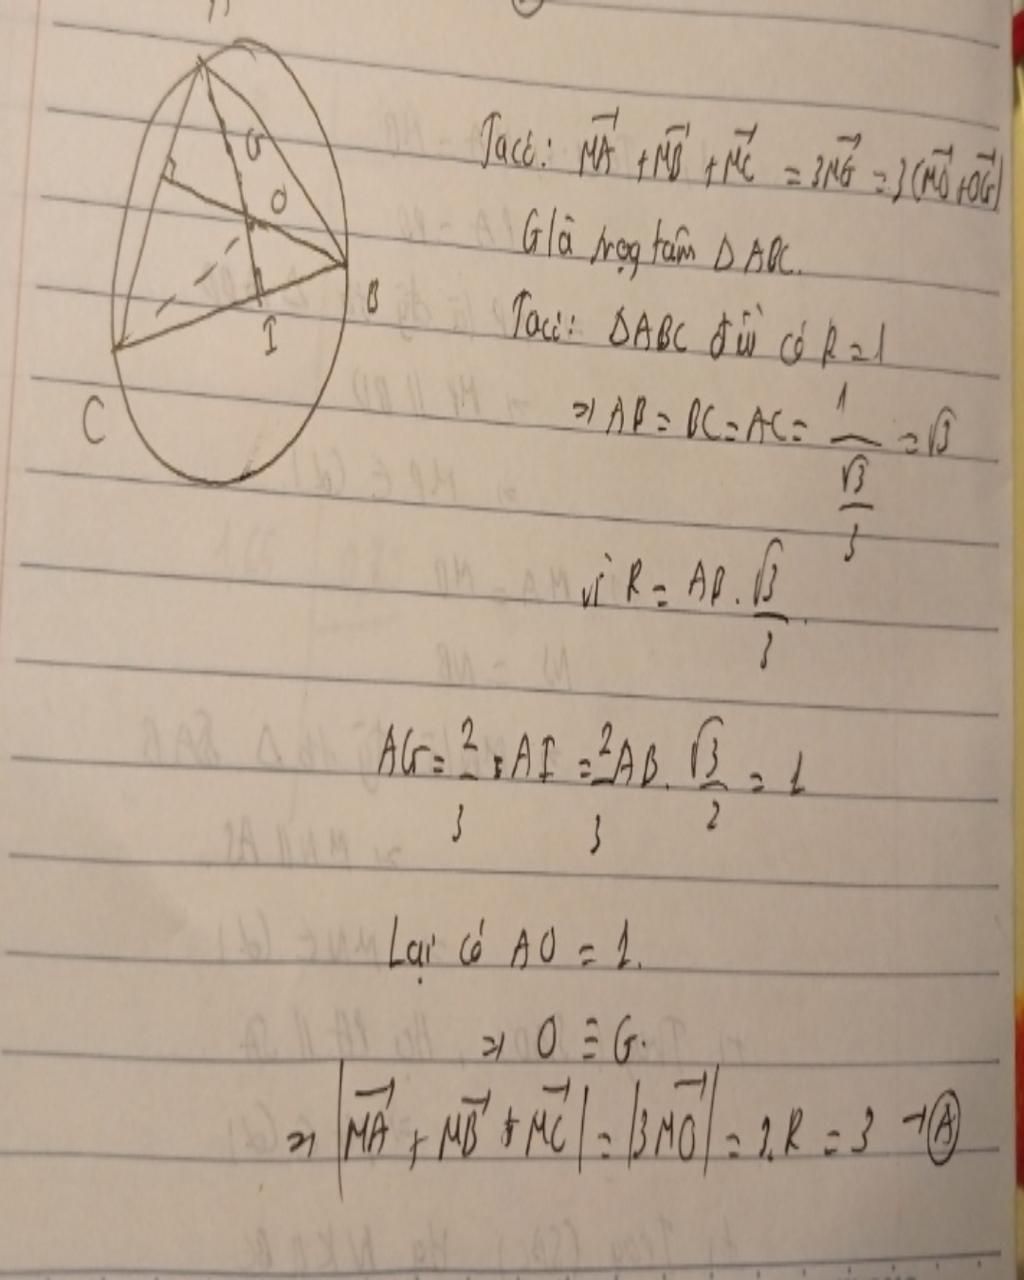 A
G
O
B
I
C
Ta có: \vec{MA} + \vec{MB} + \vec{MC} = 3\vec{MG} = 3(\vec{MO} + \vec{OG})
G là trọg tâm Δ ABC.
Ta có: ΔABC đều có R = 1
=> AB = BC = AC = \frac{1}{\frac{√3}{3}} = √3
vì R = AB . \frac{√3}{3}
AG = \frac{2}{3} . AI = \frac{2}{3} AB . \frac{√3}{2} = 1
Lại có AO = 1.
=> O ≡ G.
=> |\vec{MA} + \vec{MB} + \vec{MC}| = |3\vec{MO}| = 3.R = 3 → Ⓐ